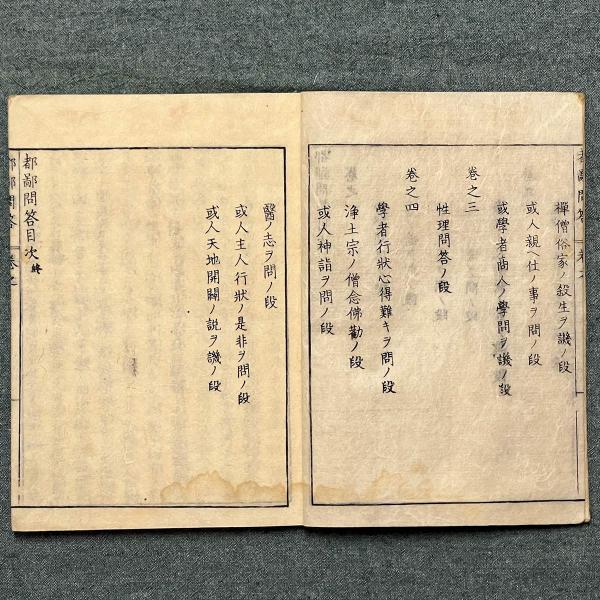 禪僧俗家ノ殺生ヲ譏ノ段
或人親ヘ仕ノ事ヲ問ノ段
或學者商人ノ學問ヲ譏ノ段
卷之三
性理問答ノ段
卷之四
學者行狀心得難キヲ問ノ段
浄土宗ノ僧念佛勸ノ段
或人神詣ヲ問ノ段
醫ノ志ヲ問ノ段
或人主人行狀ノ是非ヲ問ノ段
或人天地開闢ノ説ヲ譏ノ段
都鄙問答目次終
都鄙問答 卷之